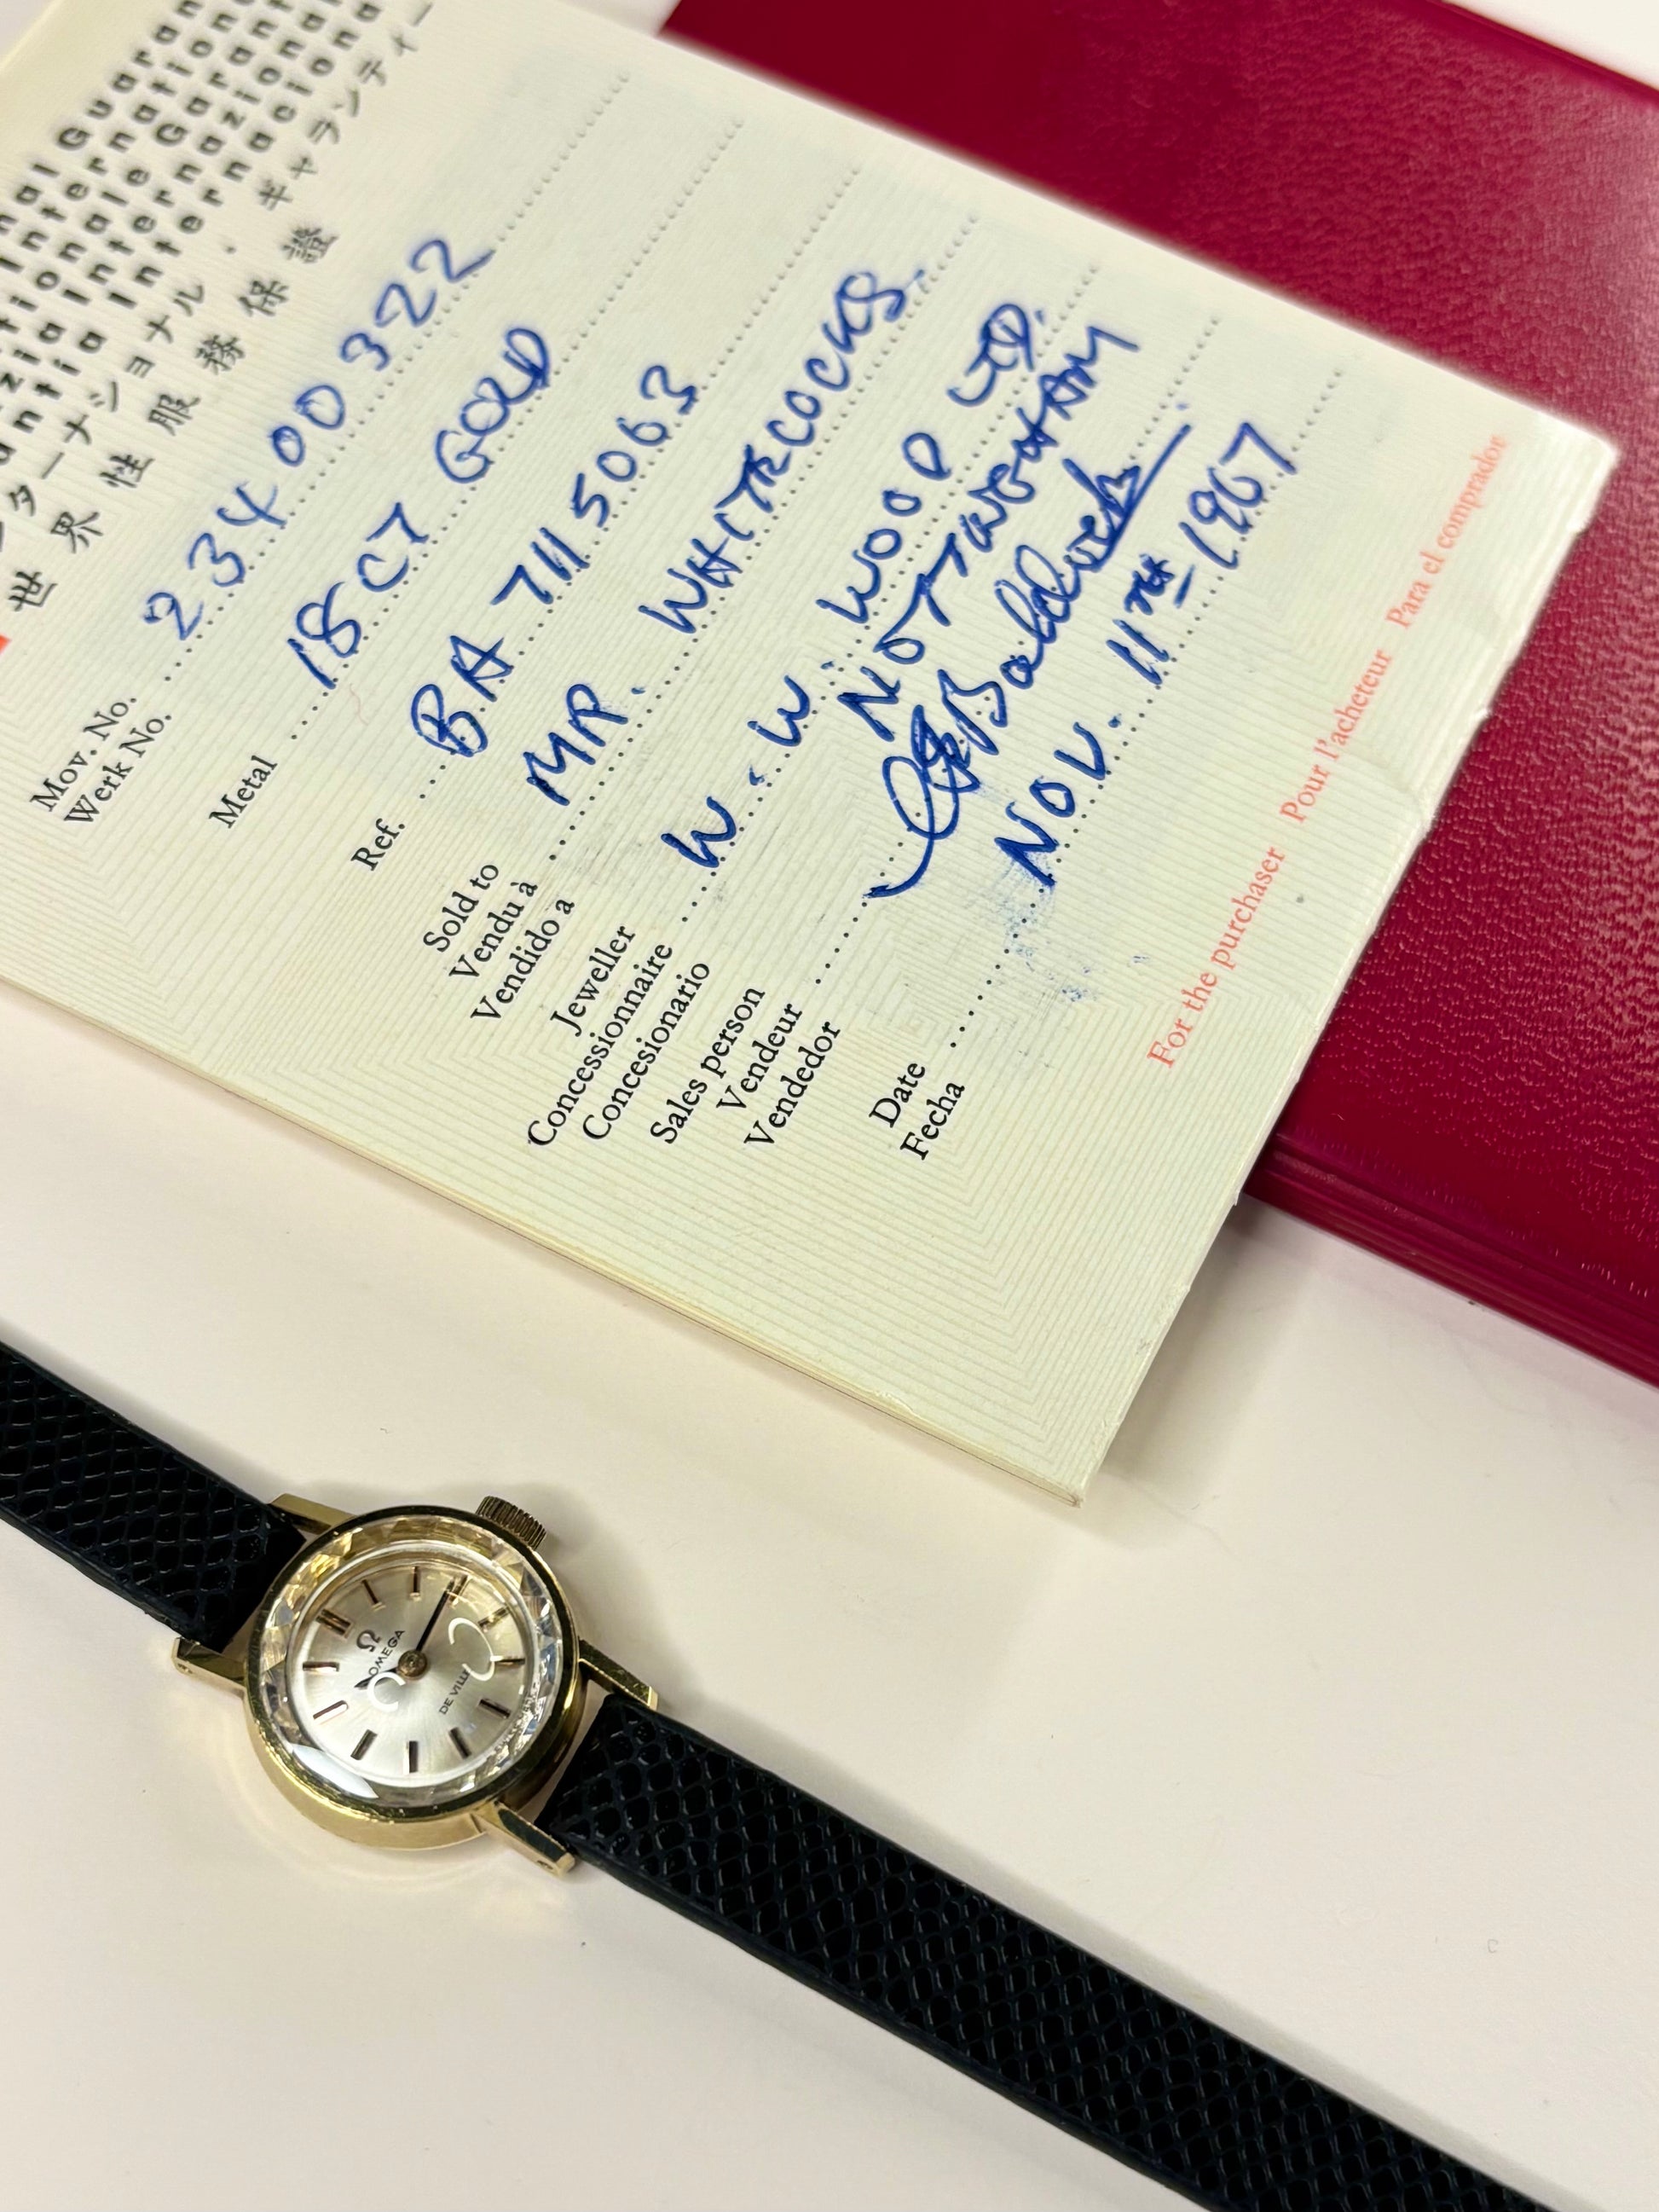 nal Guaran
Internation
ionale Garant
zia Internazional
antia Internacion
ンターナショナル・ギャランティー
世界性服務保證
Mov. No. 23400322
Werk No.
Metal 18CT GOLD
Ref. BA 7115063
Sold to MR. WHITECOCKS.
Vendu à
Vendido a
Jeweller W. W. WOOD LTD.
Concessionnaire NOTTINGHAM
Concesionario
Sales person
Vendeur
Vendedor
Date NOV. 11TH 1967
Fecha
For the purchaser Pour l'acheteur Para el comprador
Ω
OMEGA
DE VILLE